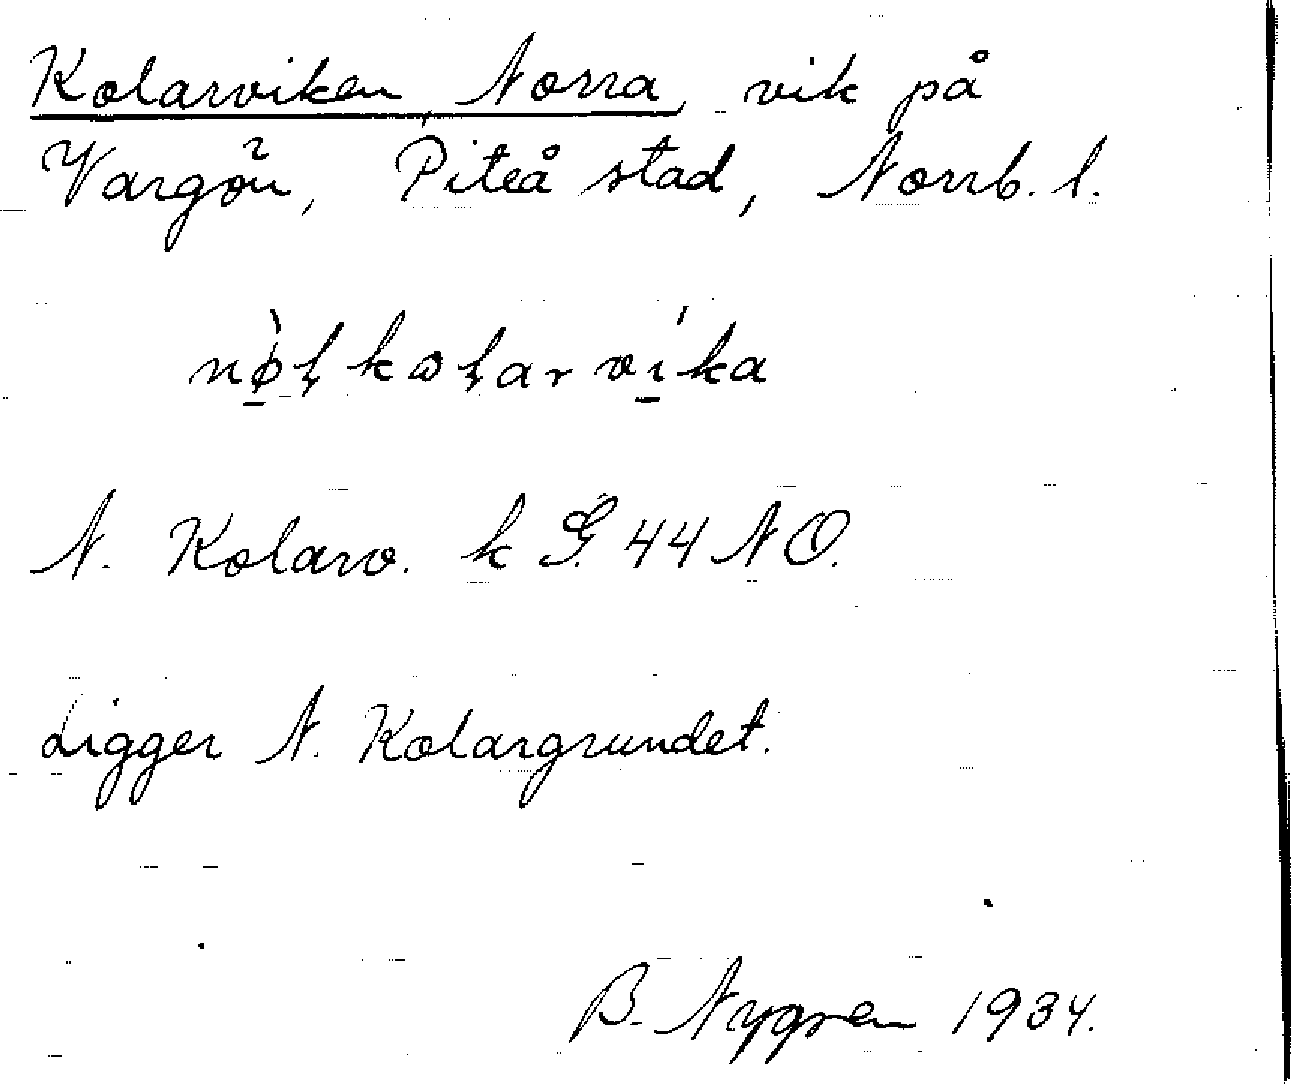 Kolarviken, Norra, vik på
Vargön, Piteå stad, Norrb. l.
N. Kolarv. k G. 44 NO.
Ligger N. Kolargrundet.
B. Nygren 1934.